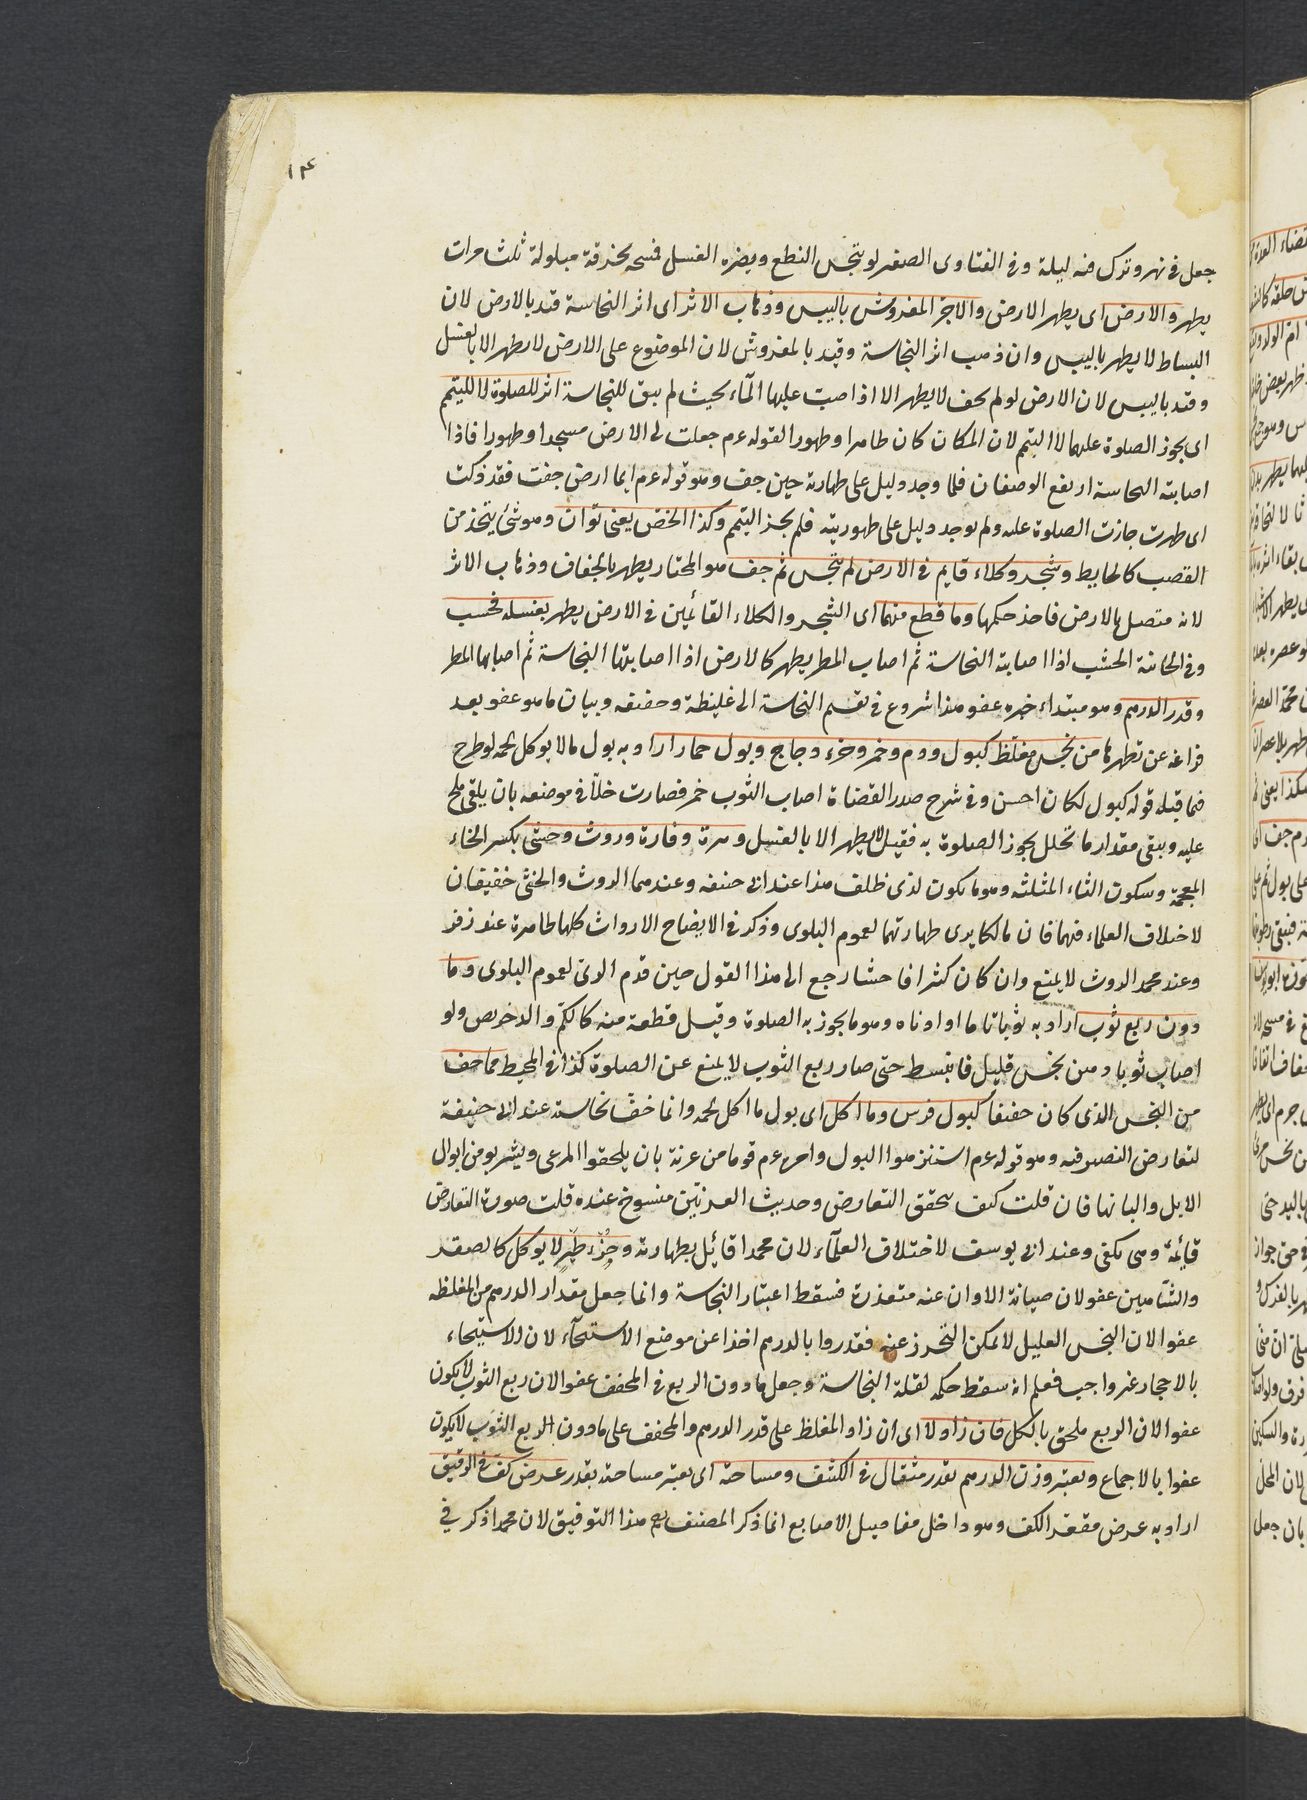 ١٤
جعل في نهر وترك فيه ليلة وفي الفتاوى الصغير لو تنجس النطع ويضره الغسل فمسحه بخرقة مبلولة ثلث مرات
يطهر والارض اى يطهر الارض والاجر المفروش باليبس وذهاب الاثر اى اثر النجاسة قيد بالارض لان
البساط لا يطهر باليبس وان ذهب اثر النجاسة وقيد بالمفروش لان الموضوع على الارض لا يطهر الا بالغسل
وقيد باليبس لان الارض لو لم يجف لا يطهر الا اذا صب عليها المآء بحيث لم يبق للنجاسة اثر للصلوة لا لليتمم
اى يجوز الصلوة عليها لا التيمم لان المكان كان طاهرا وطهورا لقوله عم جعلت لى الارض مسجدا وطهورا فاذا
اصابته النجاسة ارتفع الوصفان فلما وجد دليل على طهارته حين جف وهو قوله عم ايما ارض جفت فقد ذكت
اى طهرت جازت الصلوة عليه ولم يوجد دليل على طهوريته فلم يجز التيمم وكذا الخص يعنى توان وهو شئ يتخذ من
القصب كالحايط وشجر وكلاء قايم في الارض لم تنجس ثم جف هو المختار يطهر بالجفاف وذهاب الاثر
لانه متصل بالارض فاخذ حكمها وما قطع منهما اى الشجر والكلاء القائمين في الارض يطهر بغسله فحسب
وفي الخانية الخشب اذا اصابته النجاسة ثم اصاب المطر يطهر كالارض اذا اصابتها النجاسة ثم اصابها المطر
وقدر الدرهم وهو مبتداء خبره عفو هذا شروع في تقسيم النجاسة الى غليظة وخفيفة وبيان ما هو عفو بعد
فراغه عن تطهيرها من نجس مغلظ كبول ودم وخمر وخرء دجاج وبول حمار اراد به بول ما لا يوكل لحمه لو طرح
فيما قبله قوله كبول لكان احسن وفي شرح صدر القضاة اصاب الثوب خمر فصارت خلا في موضعه بان يلقى ملح
عليه ويبقى مقدار ما تخلل يجوز الصلوة به فقيل لا يطهر الا بالغسل وهرة وفارة وروث وخثى بكسر الخاء
المعجمة وسكون الثاء المثلثه وهو ما يكون لذى ظلف هذا عند ابى حنيفه وعندهما الروث والخثى خفيفان
لاختلاف العلماء فيهما فان مالكا يرى طهارتهما لعموم البلوى وذكر في الايضاح الارواث كلها طاهرة عند زفر
وعند محمد الروث لا يمنع وان كان كثيرا فاحشا رجع الى هذا القول حين قدم الرى لعموم البلوى وما
دون ربع ثوب اراد به ثوبا تاما او ادناه وهو ما يجوز به الصلوة وقيل قطعة منه كالكم والدخريص ولو
اصاب ثوبا دهن نجس قليل فانبسط حتى صار ربع الثوب لا يمنع عن الصلوة كذا في المحيط مما خف
من النجس الذى كان خفيفا كبول فرس وما اكل اى بول ما اكل لحمه وانما خف نجاسته عند ابى حنيفة
لتعارض النصين فيه وهو قوله عم استنزهوا البول وامره عم قوما من عرنة بان يلحقوا المرعى ويشربوا من ابوال
الابل والبانها فان قلت كيف يتحقق التعارض وحديث العرنيين منسوخ عنده قلت صورة التعارض
قائمة وهى تكفى وعند ابى يوسف لاختلاف العلمآء لان محمدا قائل بطهارته وخرء طير لا يوكل كالصقر
والشاهين عفو لان صيانة الاوان عنه متعذرة فسقط اعتبار النجاسة وانما جعل مقدار الدرهم من المغلظه
عفوا لان النجس القليل لا يمكن التحرز عنه فقدروا بالدرهم اخذا عن موضع الاستنجآء لان الاستنجاء
بالاحجار غير واجب فعلم انه سقط حكمه لقلة النجاسة وجعل ما دون الربع في المخفف عفوا لان ربع الثوب لا يكون
عفوا لان الربع ملحق بالكل فان زاد لا اى ان زاد المغلظ على قدر الدرهم والمخفف على ما دون الربع الثوب لا يكون
عفوا بالاجماع ويعتبر وزن الدرهم بقدر مثقال في الكثيف ومساحته اى يعتبر مساحته بقدر عرض كف في الرقيق
اراد به عرض مقعر الكف وهو داخل مفاصل الاصابع انما ذكر المصنف هذا التوفيق لان محمدا ذكر في